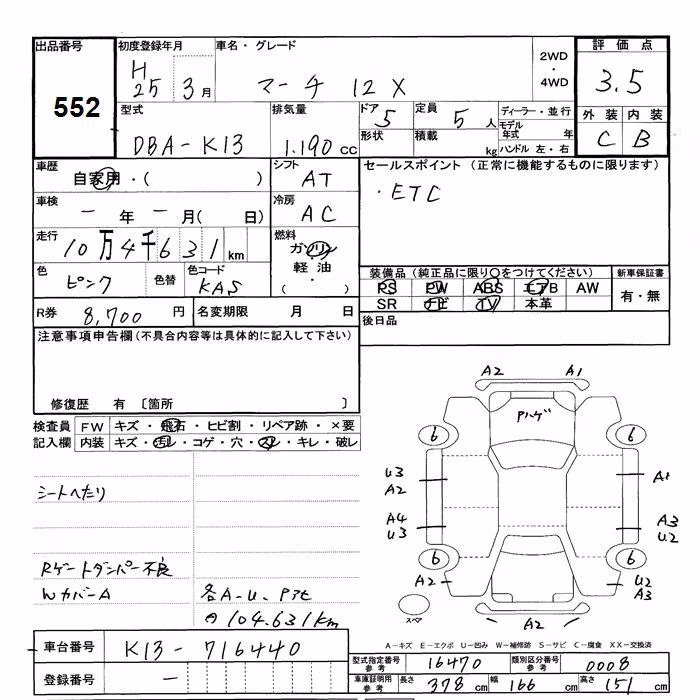 出品番号
552
初度登録年月
H
25 3 月
車名・グレード
マーチ 12 X
2WD
・
4WD
評価点
3.5
外装 内装
C B
型式
DBA-K13
排気量
1.190 cc
ドア
5
形状
定員
5 人
積載 kg
ディーラー・並行
モデル年式 年
ハンドル 左・右
車歴
自家用・( )
シフト
AT
セールスポイント (正常に機能するものに限ります)
・ETC
車検
ー 年 ー 月( 日)
冷房
AC
走行
10万4千631 km
燃料
ガソリン
・
軽油
・
( )
色
ピンク
色替
色コード
KAS
装備品 (純正品に限り○をつけてください)
新車保証書
PS PW ABS エアB AW
有・無
SR ナビ TV 本革
R券 8,700 円
名変期限 月 日
後日品
注意事項申告欄 (不具合内容等は具体的に記入して下さい)
修復歴 有 〔箇所 〕
検査員
記入欄
FW キズ・飛石・ヒビ割・リペア跡・×要
内装 キズ・汚レ・コゲ・穴・スレ・キレ・破レ
シートへたり
Rゲートダンパー不良
WカバーA
各A-U、Pアヒ
104.631km
A2 A1
Pハゲ
6 6
U3
A2
A1
A4
U3
A3
U2
6 6
A2
U2
A3
スペア
A2
A-キズ E-エクボ U-凹み W-補修跡 S-サビ C-腐食 XX-交換済
車台番号 K13-716440
登録番号 ー
型式指定番号
参考
16470
類別区分番号
参考
0008
車庫証明用
参考
長さ 378 cm
幅 166 cm
高さ 151 cm